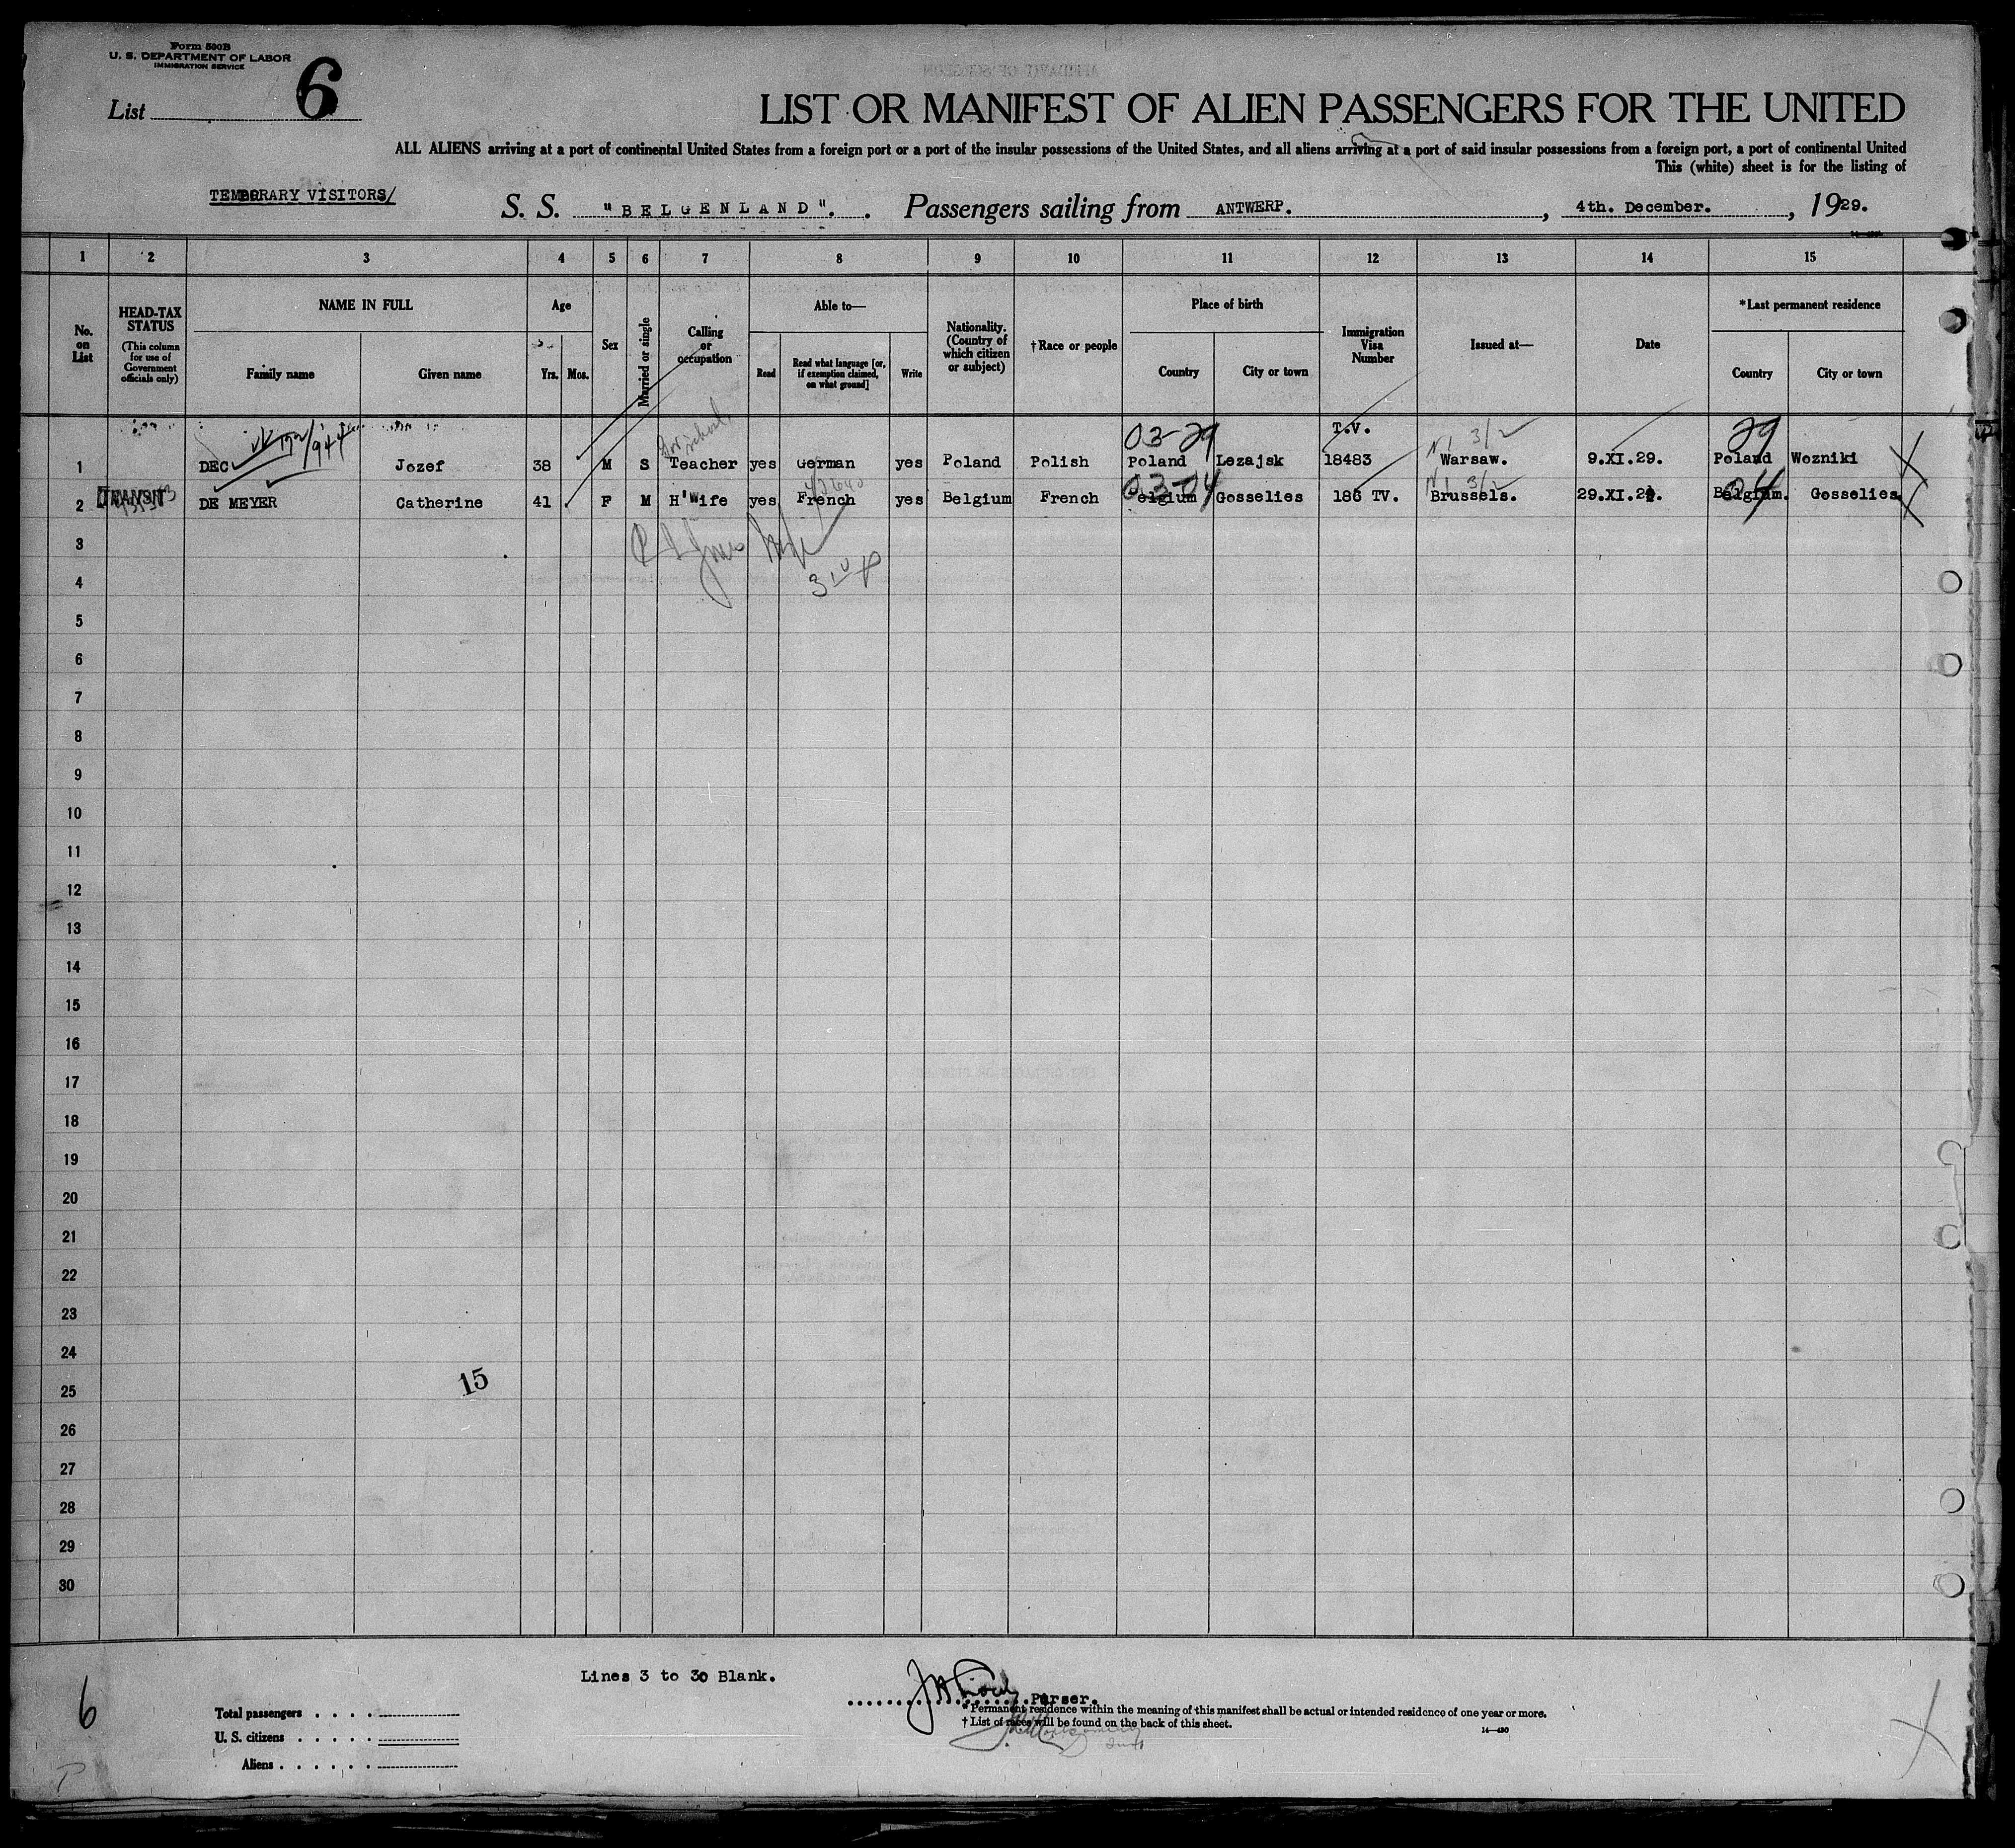 Form 500B
U. S. DEPARTMENT OF LABOR
IMMIGRATION SERVICE
List 6
LIST OR MANIFEST OF ALIEN PASSENGERS FOR THE UNITED
ALL ALIENS arriving at a port of continental United States from a foreign port or a port of the insular possessions of the United States, and all aliens arriving at a port of said insular possessions from a foreign port, a port of continental United
This (white) sheet is for the listing of
TEMPORARY VISITORS/
S. S. "BELGENLAND". Passengers sailing from ANTWERP. , 4th. December. , 1929.
1 2 3 4 5 6 7 8 9 10 11 12 13 14 15
No. on List
HEAD-TAX STATUS
(This column for use of Government officials only)
NAME IN FULL
Family name
Given name
Age
Yrs. Mos.
Sex
Married or single
Calling or occupation
Able to—
Read
Read what language [or, if exemption claimed, on what ground]
Write
Nationality. (Country of which citizen or subject)
†Race or people
Place of birth
Country
City or town
Immigration Visa Number
Issued at—
Date
*Last permanent residence
Country
City or town
03-29 T.V. 3/2 29
1 DEC Jozef 38 M S Teacher yes German yes Poland Polish Poland Lezajsk 18483 Warsaw. 9.XI.29. Poland Wozniki
03-04 3/2 04
2 TRANSIT DE MEYER Catherine 41 F M H'Wife yes French yes Belgium French Belgium Gosselies 186 TV. Brussels. 29.XI.29. Belgium. Gosselies
3
4
5
6
7
8
9
10
11
12
13
14
15
16
17
18
19
20
21
22
23
24
15
25
26
27
28
29
30
Lines 3 to 30 Blank.
Purser.
6
Total passengers
U. S. citizens
Aliens
* Permanent residence within the meaning of this manifest shall be actual or intended residence of one year or more.
† List of races will be found on the back of this sheet.
14—430